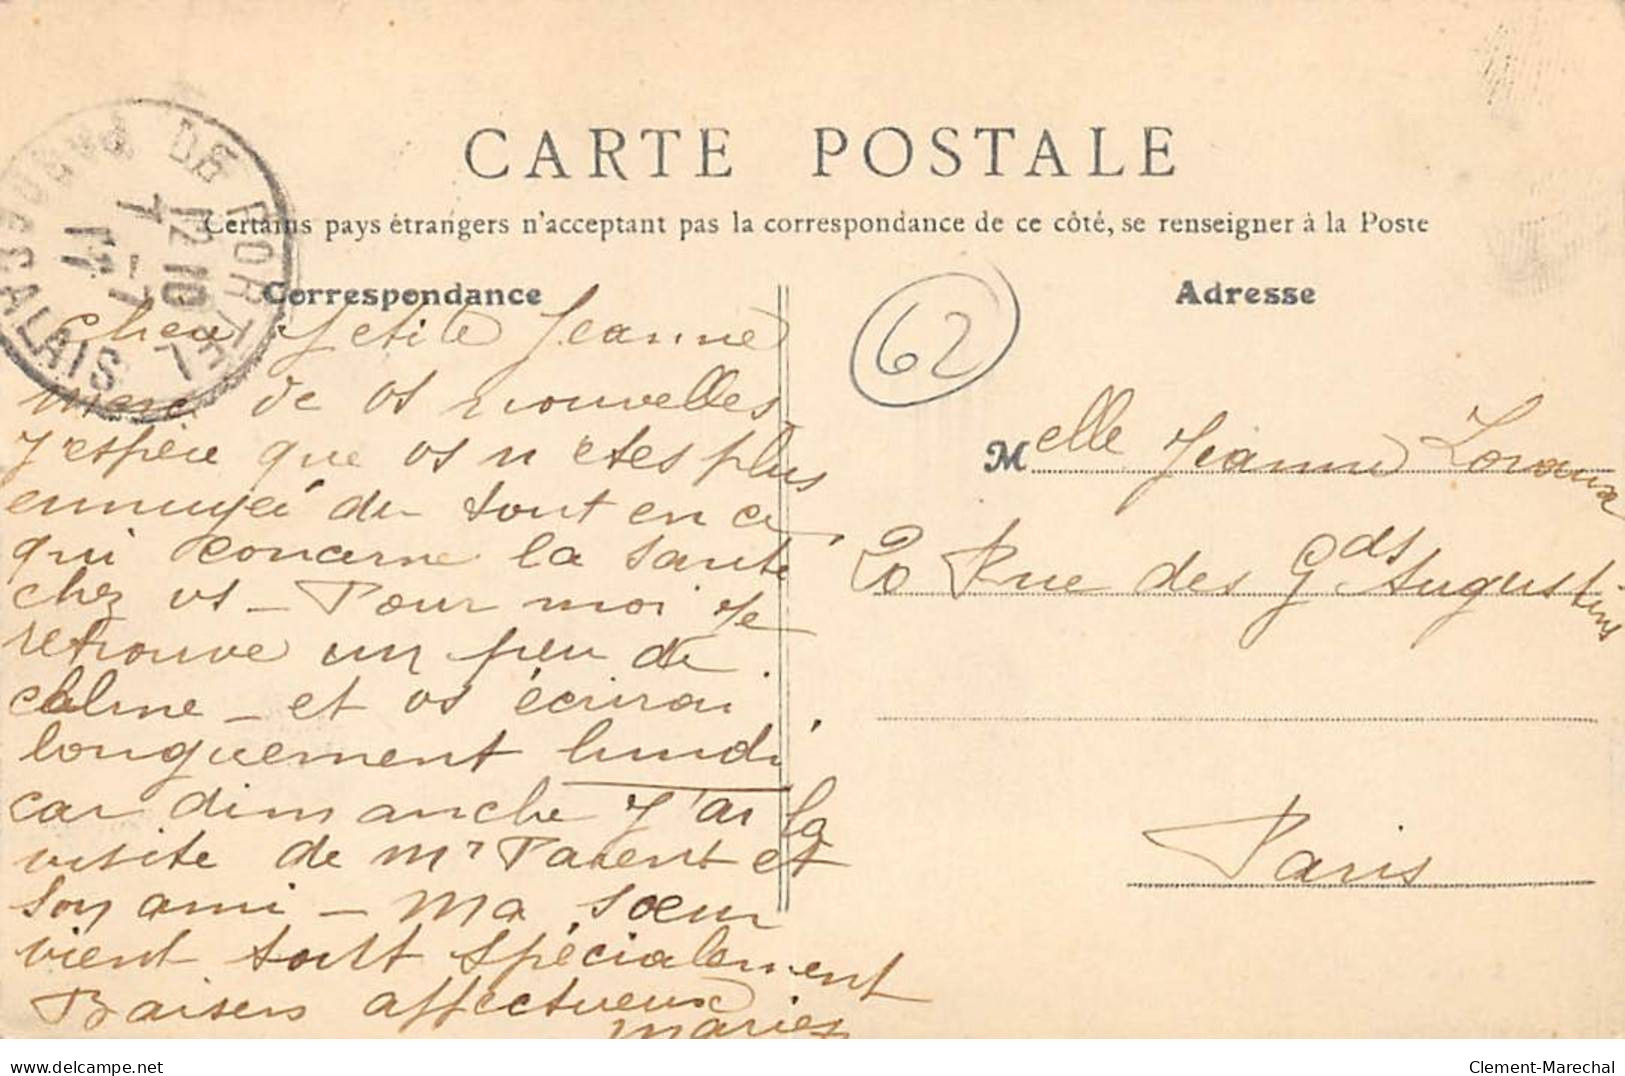 CARTE POSTALE
Certains pays étrangers n'acceptant pas la correspondance de ce côté, se renseigner à la Poste
Correspondance
Chere petite Jeanne
merci de vs nouvelles
j'espère que vs n'etes plus
ennuyée du tout en ce
qui concerne la santé
chez vs - Pour moi je
retrouve un peu de
calme - et vs écrirai
longuement lundi
car dimanche j'ai la
visite de Mr Parent et
son ami - Ma sœur
vient tout spécialement
Baisers affectueux
Adresse
62
Melle Jeanne
20 Rue des Gds Augustins
Paris
DE
CALAIS
12 10
7 - 7
11
Clement-Marechal
www.delcampe.net